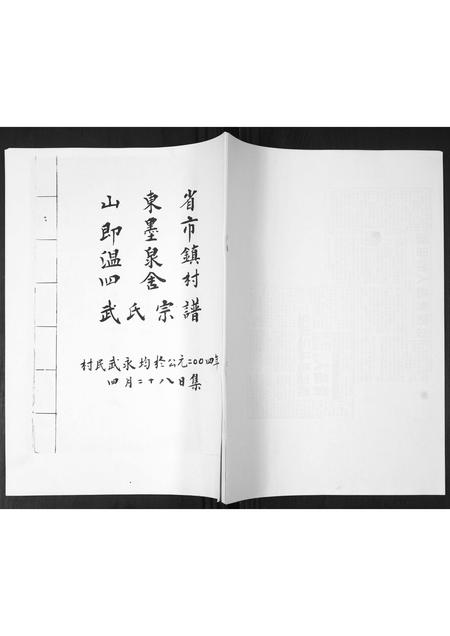 山東省
即墨市
溫泉鎮
四舍村
武氏宗譜
村民武永均於公元二00四年
四月二十八日集